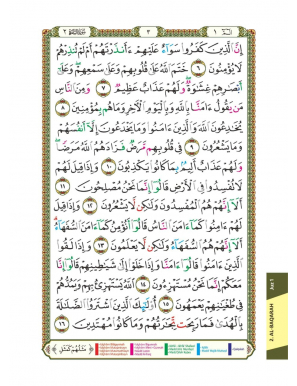 إِنَّ ٱلَّذِينَ كَفَرُوا۟ سَوَآءٌ عَلَيْهِمْ ءَأَنذَرْتَهُمْ أَمْ لَمْ تُنذِرْهُمْ
لَا يُؤْمِنُونَ ٦ خَتَمَ ٱللَّهُ عَلَىٰ قُلُوبِهِمْ وَعَلَىٰ سَمْعِهِمْ ۖ وَعَلَىٰٓ
أَبْصَٰرِهِمْ غِشَٰوَةٌ ۖ وَلَهُمْ عَذَابٌ عَظِيمٌ ٧ وَمِنَ ٱلنَّاسِ
مَن يَقُولُ ءَامَنَّا بِٱللَّهِ وَبِٱلْيَوْمِ ٱلْءَاخِرِ وَمَا هُم بِمُؤْمِنِينَ ٨
يُخَٰدِعُونَ ٱللَّهَ وَٱلَّذِينَ ءَامَنُوا۟ وَمَا يَخْدَعُونَ إِلَّآ أَنفُسَهُمْ
وَمَا يَشْعُرُونَ ٩ فِى قُلُوبِهِم مَّرَضٌ فَزَادَهُمُ ٱللَّهُ مَرَضًا ۖ
وَلَهُمْ عَذَابٌ أَلِيمٌۢ بِمَا كَانُوا۟ يَكْذِبُونَ ١٠ وَإِذَا قِيلَ لَهُمْ
لَا تُفْسِدُوا۟ فِى ٱلْأَرْضِ قَالُوٓا۟ إِنَّمَا نَحْنُ مُصْلِحُونَ ١١
أَلَآ إِنَّهُمْ هُمُ ٱلْمُفْسِدُونَ وَلَٰكِن لَّا يَشْعُرُونَ ١٢ وَإِذَا قِيلَ
لَهُمْ ءَامِنُوا۟ كَمَآ ءَامَنَ ٱلنَّاسُ قَالُوٓا۟ أَنُؤْمِنُ كَمَآ ءَامَنَ ٱلسُّفَهَآءُ ۗ
أَلَآ إِنَّهُمْ هُمُ ٱلسُّفَهَآءُ وَلَٰكِن لَّا يَعْلَمُونَ ١٣ وَإِذَا لَقُوا۟
ٱلَّذِينَ ءَامَنُوا۟ قَالُوٓا۟ ءَامَنَّا وَإِذَا خَلَوْا۟ إِلَىٰ شَيَٰطِينِهِمْ قَالُوٓا۟ إِنَّا
مَعَكُمْ إِنَّمَا نَحْنُ مُسْتَهْزِءُونَ ١٤ ٱللَّهُ يَسْتَهْزِئُ بِهِمْ وَيَمُدُّهُمْ
فِى طُغْيَٰنِهِمْ يَعْمَهُونَ ١٥ أُو۟لَٰٓئِكَ ٱلَّذِينَ ٱشْتَرَوُا۟ ٱلضَّلَٰلَةَ
بِٱلْهُدَىٰ فَمَا رَبِحَت تِّجَٰرَتُهُمْ وَمَا كَانُوا۟ مُهْتَدِينَ ١٦
مَثَلُهُمْ كَمَثَلِ
2. AL-BAQARAH
Juz 1